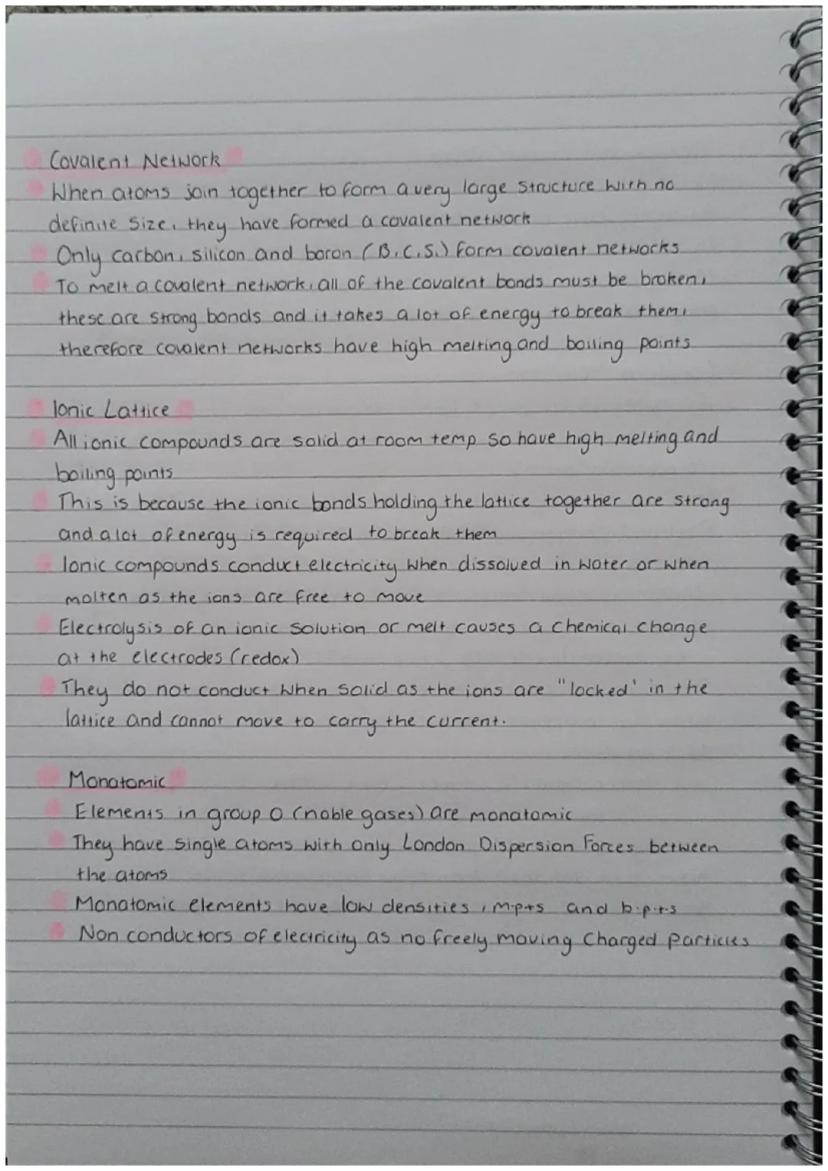 Covalent Network
When atoms join together to form a very large structure with no
definite size, they have formed a covalent network
Only carbon, silicon and boron (B.C.S.) form covalent networks
To melt a covalent network, all of the covalent bonds must be broken,
these are strong bonds and it takes a lot of energy to break them,
therefore covalent networks have high melting and boiling points
Ionic Lattice
All ionic compounds are solid at room temp so have high melting and
boiling points
This is because the ionic bonds holding the lattice together are strong
and a lot of energy is required to break them
Ionic compounds conduct electricity when dissolved in water or when
molten as the ions are free to move
Electrolysis of an ionic solution or melt causes a chemical change
at the electrodes (redox)
They do not conduct when solid as the ions are "locked' in the
lattice and cannot move to carry the current.
Monatomic
Elements in group 0 (noble gases) are monatomic
They have single atoms with only London Dispersion Forces between
the atoms
Monatomic elements have low densities, m.pts and b.p.t.s
Non conductors of electricity as no freely moving charged particles